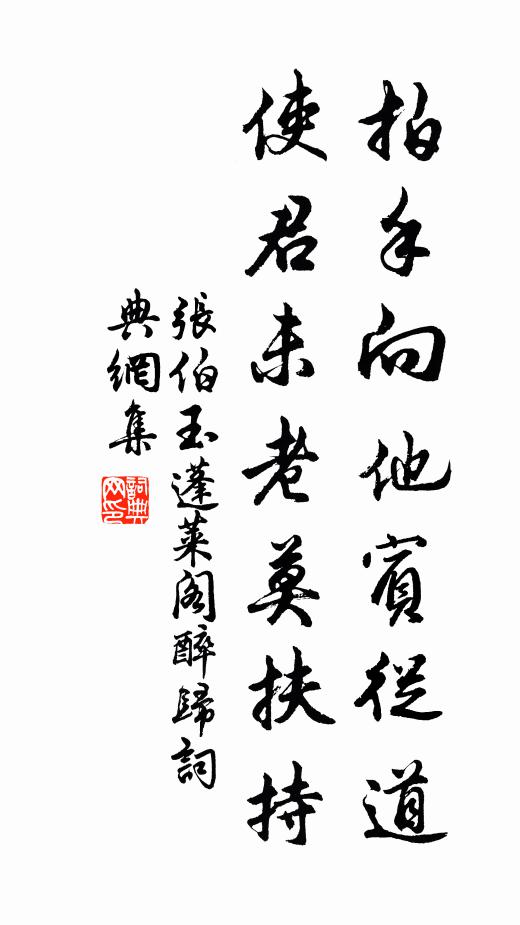 拍手向他賓從道
使君未老莫扶持
張伯玉蓬萊閣醉歸詞
典網集
詞典
网印